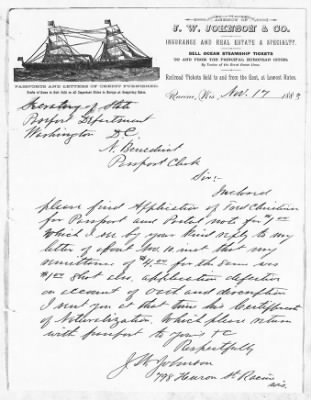 J. W. JOHNSON & CO.
INSURANCE AND REAL ESTATE A SPECIALTY.
SELL OCEAN STEAMSHIP TICKETS
TO AND FROM THE PRINCIPAL EUROPEAN CITIES.
By Two of the Great Ocean Lines.
PASSPORTS AND LETTERS OF CREDIT FURNISHED.
Railroad Tickets sold to and from the East, at Lowest Rates.
Racine, Wis. Nov. 17 1883
Secretary of State
Passport Department
Washington D.C.
N. Benedict
Passport Clerk
Sir:-
Inclosed
please find Application of Fred Christian
for Passport and Postal note for $1.00
Which I see by your kind reply to my
letter of about Nov. 10 inst that my
remittance of $4.00 for the same was
$1.00 Short also application defective
on account of Oath and discription
I sent you at that time his Certificate
of Naturalization. Which please return
with passport to yours &c
Respectfully
J. W. Johnson
798 Huron St. Racine
Wis.